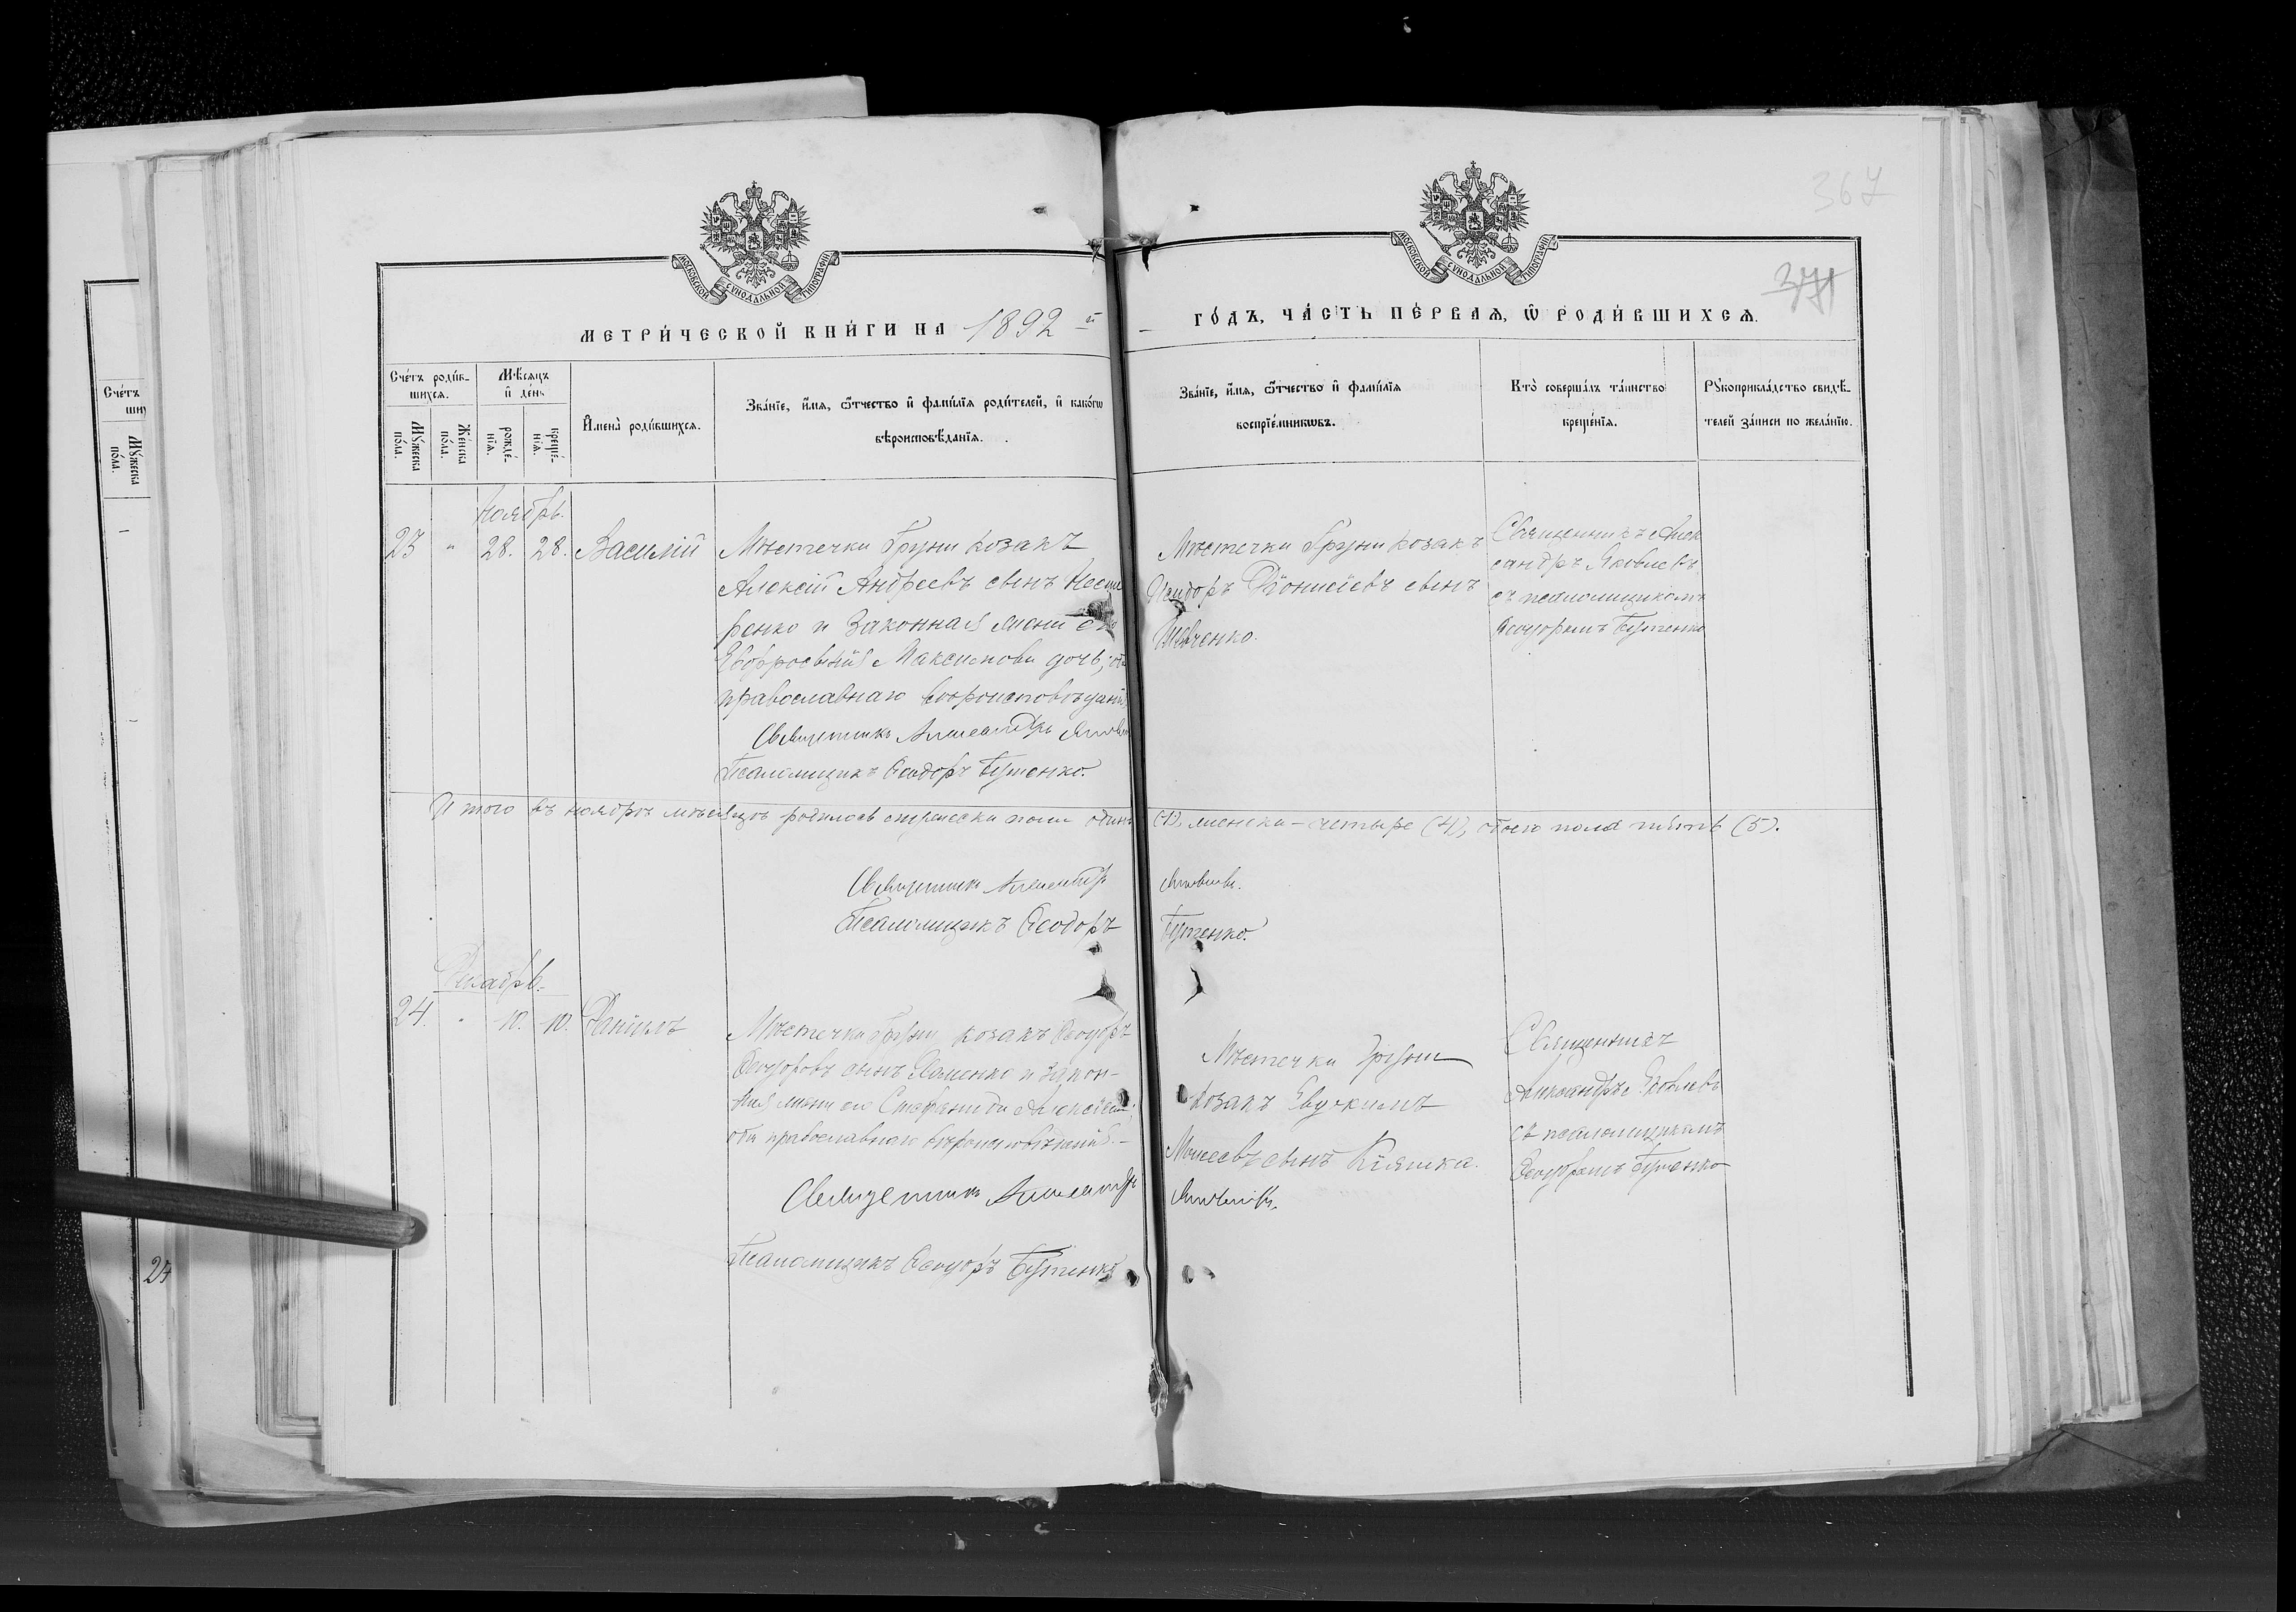 367
371
МОСКОВСКОЙ СѴНОДАЛЬНОЙ ТИПОГРАФІИ
МОСКОВСКОЙ СѴНОДАЛЬНОЙ ТИПОГРАФІИ
МЕТРИ́ЧЕСКОЙ КНИ́ГИ НА 1892 й
ГО́ДЪ, ЧА́СТЬ ПЕ́РВАЯ, Ѿ РОДИ́ВШИХСЯ.
Сче́тъ роди́в-
шихся.
Мꙋ́жеска по́ла.
Же́нска по́ла.
Мѣ́сяцъ и҆ де́нь
рожде́-
нія.
креще́-
нія.
И҆мена̀ роди́вшихся.
Зва́нїе, и҆́мя, ѻ҆́тчество и҆ фами́лїя роди́телей, и҆ како́гѡ
вѣроисповѣ́данїя.
Зва́нїе, и҆́мя, ѻ҆́тчество и҆ фами́лїя
воспрїе́мникѡвъ.
Кто̀ соверша́лъ та́инство
креще́нїя.
Рꙋкоприкла́дство свидѣ́-
телей за́писи по жела́нїю.
Сче́тъ
ши
Мꙋ́жеска
по́ла.
Ноябрь.
23 " 28. 28. Василій
Мѣстечки Груни козакъ
Алексій Андреевъ сынъ Несте
ренко и законная жена его
Евфросинія Максимова дочь; оба
православнаго вѣроисповѣданія.
Священникъ Александръ Яковлевъ
Псаломщикъ Ѳеодоръ Бутенко.
Мѣстечки Груни козакъ
Исидоръ Діонисіевъ сынъ
Шевченко.
Священникъ Алек
сандръ Яковлевъ
съ псаломщикомъ
Ѳеодоромъ Бутенко
Итого въ ноябрѣ мѣсяцѣ родилось мужеска пола одинъ (1), женска – четыре (4), обоего пола пять (5).
Священникъ Александръ Яковлевъ.
Псаломщикъ Ѳеодоръ Бутенко.
Декабрь.
24. " 10. 10. Даніилъ
Мѣстечки Груни козакъ Ѳеодоръ
Ѳеодоровъ сынъ и закон-
ная жена его Стефанида Алексѣева;
оба православнаго вѣроисповѣданія. –
Священникъ Александръ Яковлевъ.
Псаломщикъ Ѳеодоръ Бутенко
Мѣстечки Груни
козакъ Евдокимъ
Моисеевъ сынъ Кіяшка.
Священникъ
Александръ Яковлевъ
съ псаломщикомъ
Ѳеодоромъ Бутенко
27